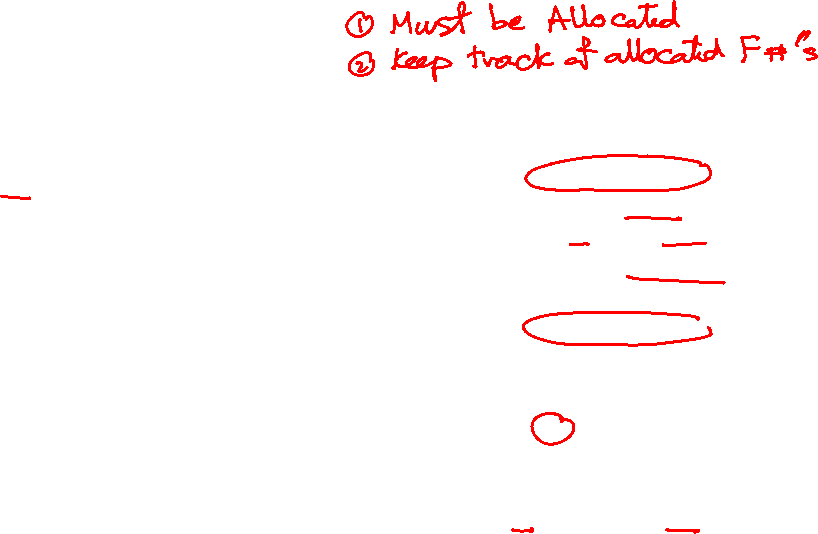 ① Must be Allocated
② Keep track of allocated F#"s